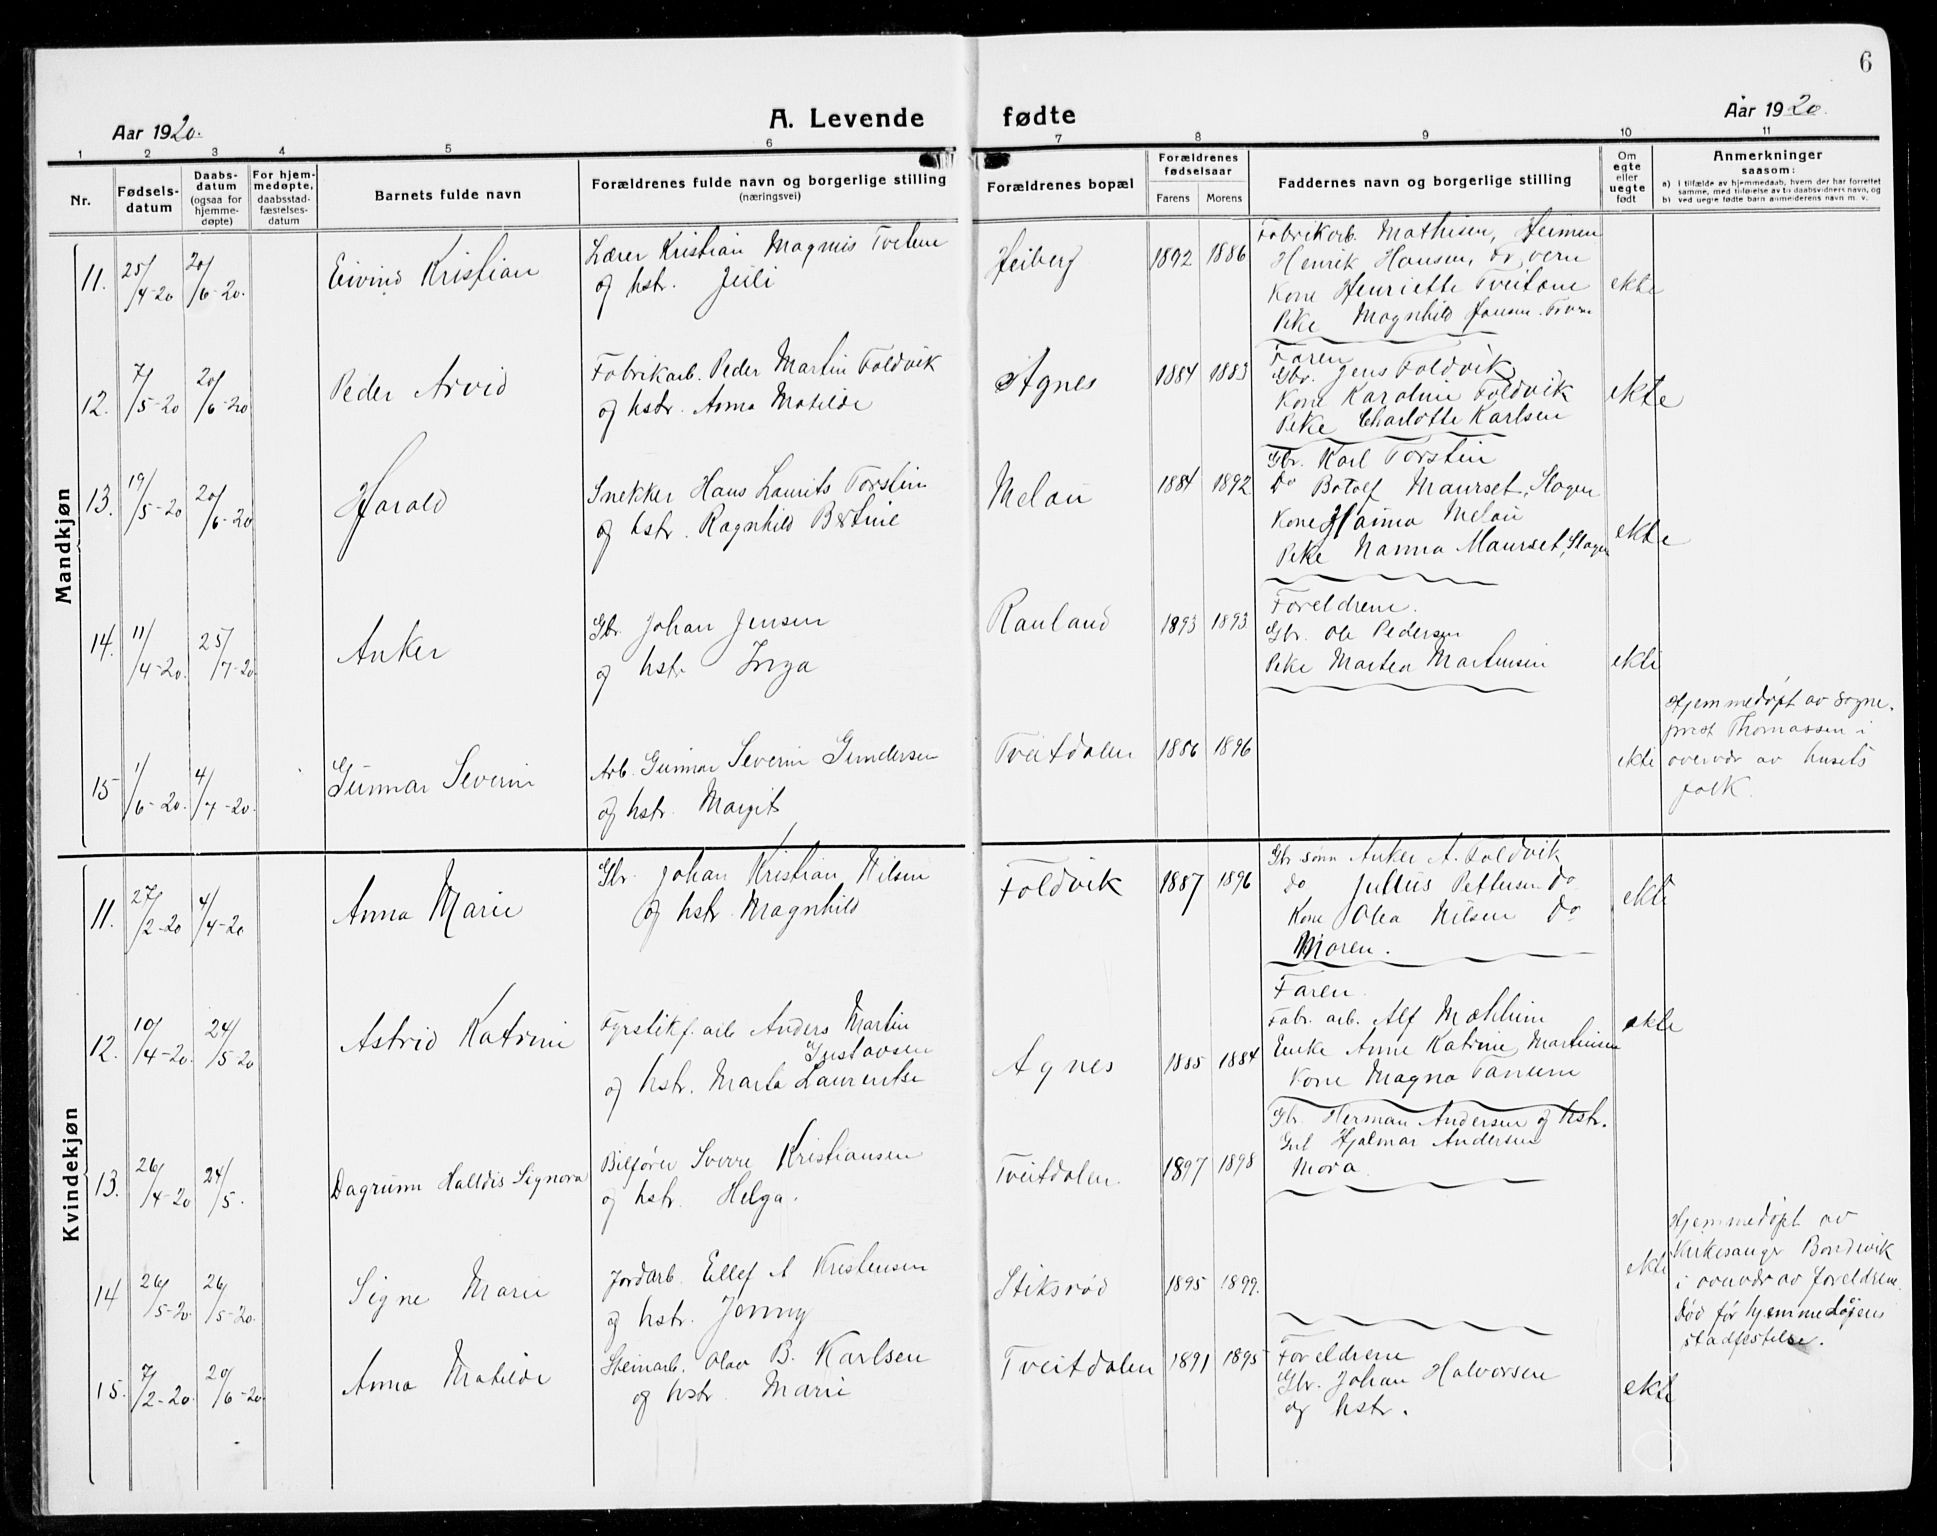 6
Aar 1920.
A. Levende fødte
Aar 1920.
1 2 3 4 5 6 7 8 9 10 11
Nr.
Fødselsdatum
Daabsdatum (ogsaa for hjemmedøpte)
For hjemmedøpte, daabsstadfæstelsesdatum
Barnets fulde navn
Forældrenes fulde navn og borgerlige stilling
(næringsvei)
Forældrenes bopæl
Forældrenes fødselsaar
Farens Morens
Faddernes navn og borgerlige stilling
Om egte eller uegte født
Anmerkninger saasom:
a) I tilfælde av hjemmedaab, hvem der har forrettet samme, med tilføielse av to daabsvidners navn, og
b) ved uegte fødte barn anmelderens navn m. v.
Mandkjøn
11. 25/4-20 20/6-20. Eivind Kristian
Lærer Kristian Magnus
og hstr.
Heiberg 1892 1886
Fabrikarb. Mathisen,
Henrik Hansen, Do
Kone Henriette Tveitane
Pike Magnhild Jansen.
ekte
12. 7/5-20 20/6-20 Peder Arvid
Fabrikarb. Peder Martin Foldvik
og hstr. Anna Matilde
Agnes 1884 1883
Faren
Gbr. Jens Foldvik,
Kone Karoline Foldvik
Pike Charlotte Karlsen
ekte
13. 19/5-20 20/6-20 Harald
Snekker Hans Laurits Torstin
og hstr. Ragnhild Bertine
Melau 1884 1892
Gbr. Karl Torstin
Do Botolf Maurset, Slagen
Kone Hanna Melau
Pike Nanna Maurset, Slagen
ekte
14. 11/4-20. 25/7-20 Anker
Gbr. Johan Jensen
og hstr Inga
Rauland 1893 1893
Foreldrene.
Gbr. Ole Pedersen
Pike Martea Martinsen
ekte
15 1/6-20. 4/7-20. Gunnar Severin
Arb. Gunnar Severin Gundersen
og hstr. Margit
Tveitdalen 1886 1896
ekte
Hjemmedøpt av sogne.
prest Thomassen i
overvær av husets
folk.
Kvindekjøn
11. 27/2-20 4/4-20 Anna Marie
Gbr. Johan Kristian Nilsen
og hstr. Magnhild
Foldvik 1887 1896
Gbr sønn Anker A. Foldvik
Do Julius Pettersen Do
Kone Olea Nilsen Do
Moren.
ekte
12. 10/4-20. 24/5-20 Astrid Katrine
Fyrstikf. arb Anders Martin
Gustavsen
og hstr. Marta Laurentse
Agnes 1885 1884
Faren.
Fabr. arb. Alf Mæhlum
Enke Anne Katrine Martinsen
Kone Magna Tanum
ekte
13. 26/4-20 24/5. Dagrunn Halldis Signora
Bilfører Sverre Kristiansen
og hstr. Helga.
Tveitdalen. 1897 1898
Gbr. Herman Andersen og hstr.
Hjalmar Andersen
Mora.
14 26/5-20. 26/5-20. Signe Marie
Jordarb. Ellef A Kristensen
og hstr. Jenny
Stiksrød 1895 1899.
ekte
Hjemmedøpt av
Kirkesanger Bondevik
i overvær av foreldrene.
Død før hjemmedåpens
stadfestelse.
15. 7/2-20. 20/6-20. Anna Matilde
Steinarb. Olav B. Karlsen
og hstr. Marie
Tveitdalen 1891 1895
Foreldrene
Gbr. Johan Halvorsen
og hstr.
ekte